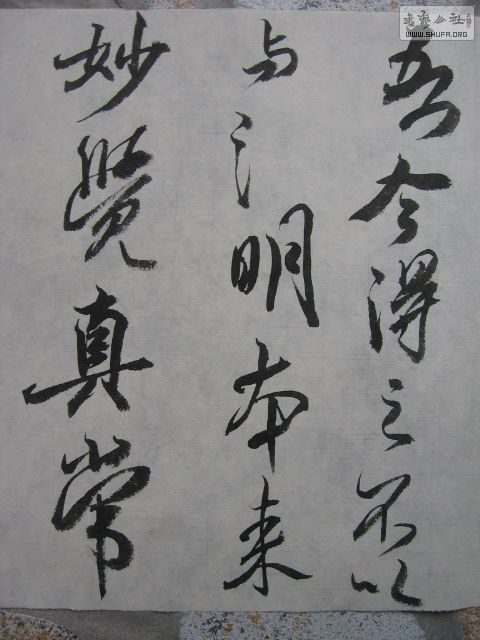 吾今得之不以
与之明本来
妙覺真常
書藝公社
WWW.SHUFA.ORG